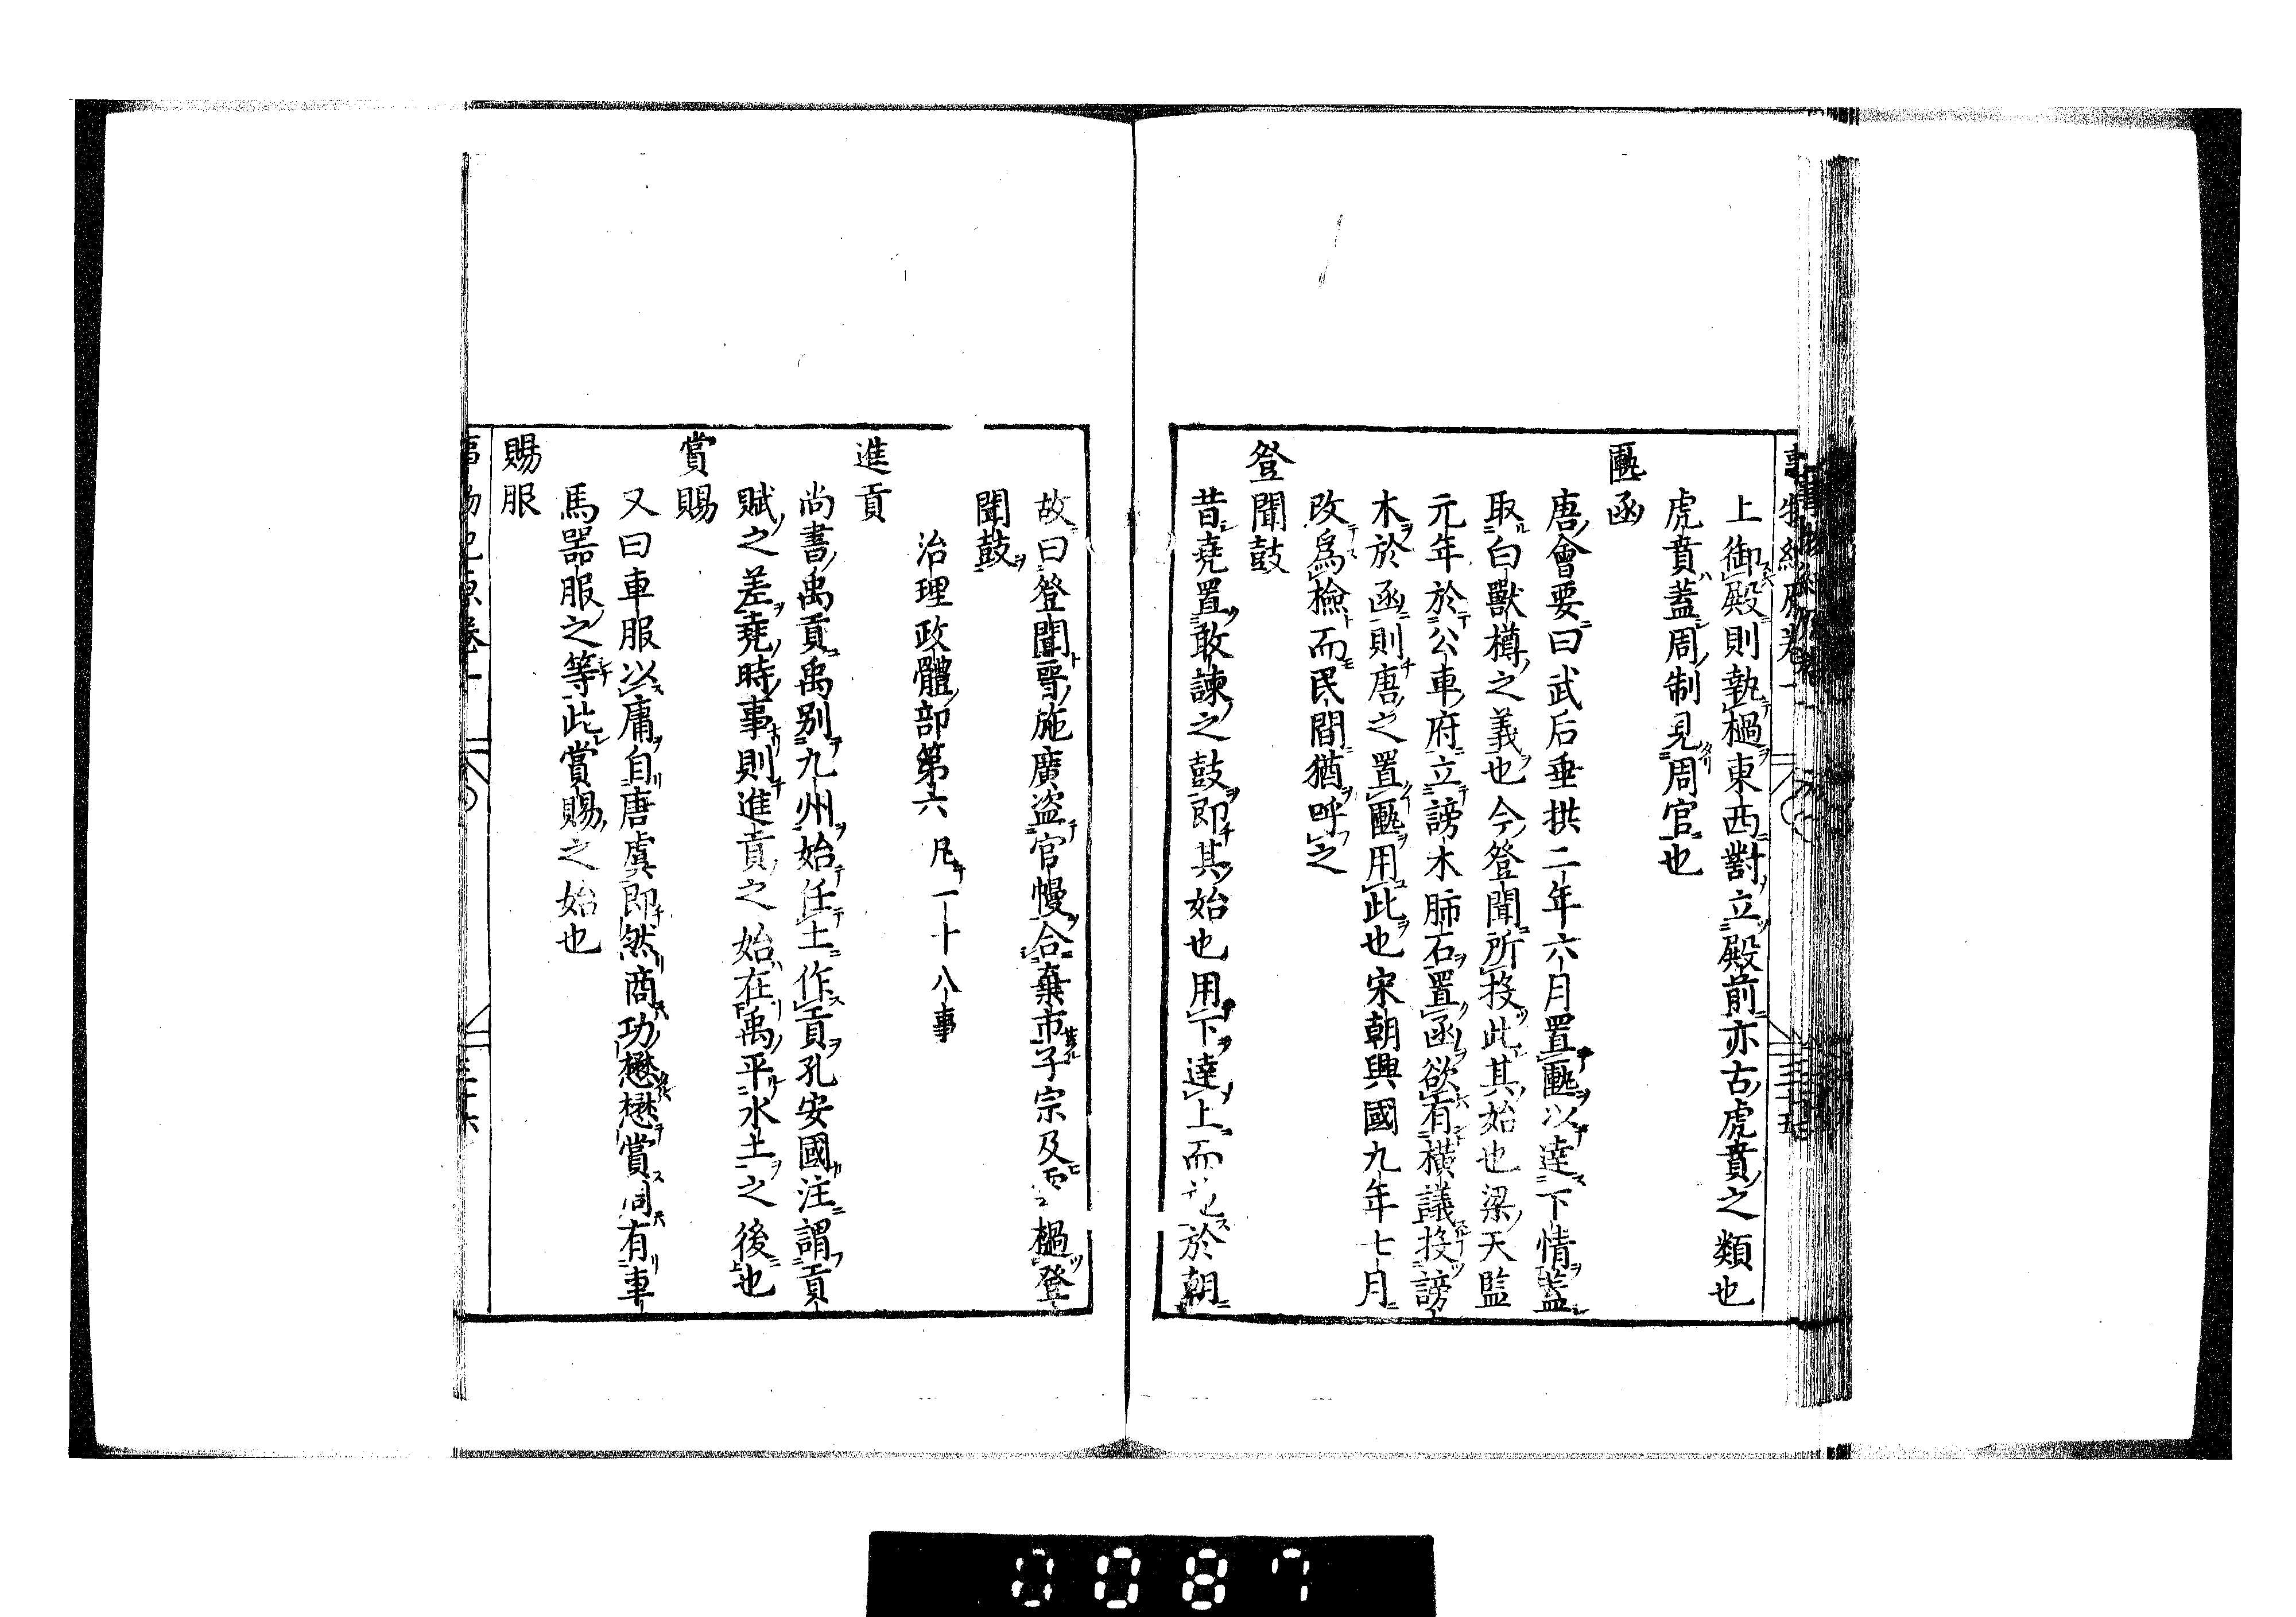 上御殿則執檛東西對立殿前亦古虎賁之類也
虎賁蓋周制見周官也
匭函
唐會要曰武后垂拱二年六月置匭以達下情蓋
取白獸樽之義也今登聞所投此其始也梁天監
元年於公車府立謗木肺石置函欲有橫議投謗
木於函則唐之置匭用此也宋朝興國九年七月
改爲檢而民間猶呼之
登聞鼓
昔堯置敢諫之鼓即其始也用下達上而於朝
故曰登聞晉施廣盜官幔合棄市子宗及雲檛登
聞鼓
治理政體部第六 凡一十八事
進貢
尚書禹貢禹別九州始任土作貢孔安國注謂貢
賦之差堯時事則進貢之始在禹平水土之後也
賞賜
又曰車服以庸自唐虞即然商功懋懋賞周有車
馬器服之等此賞賜之始也
賜服
0087